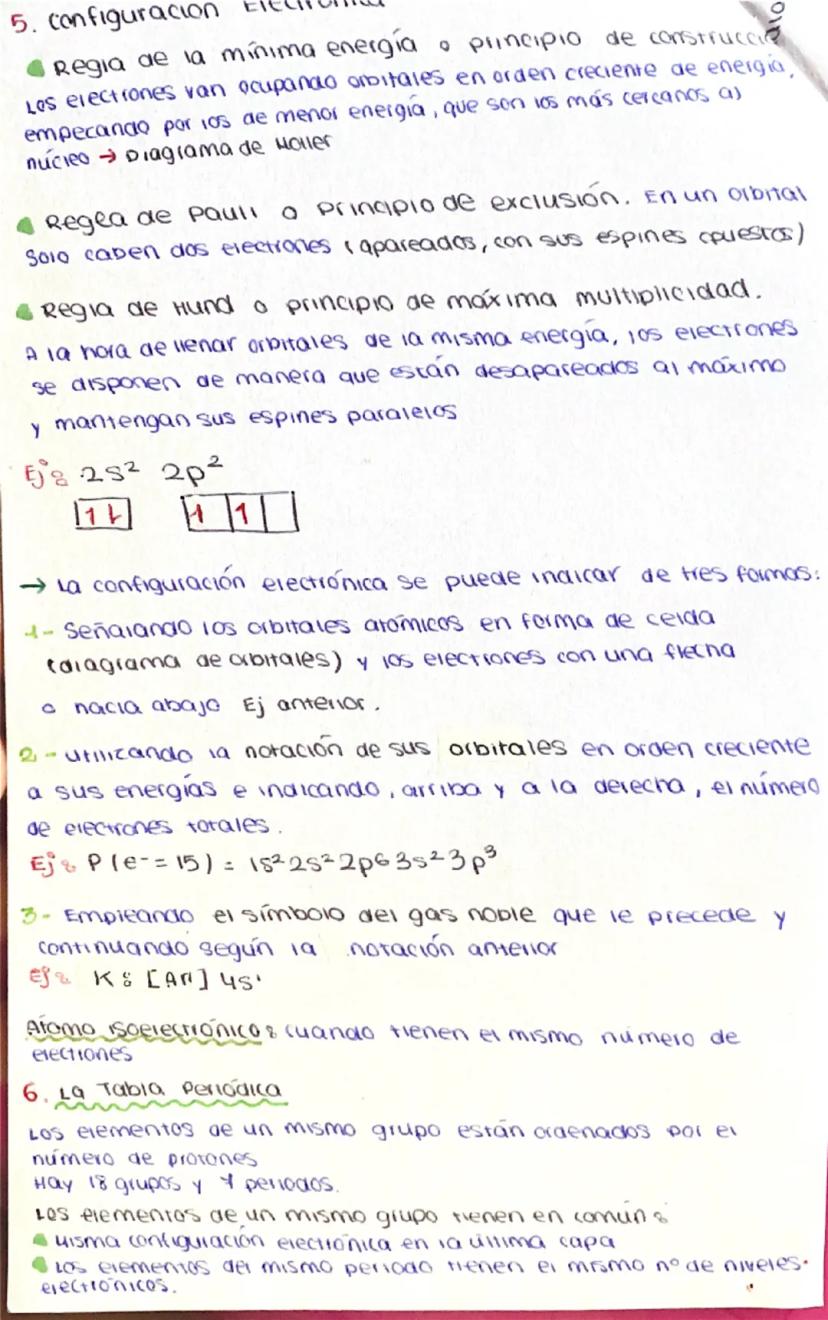 5. Configuración Electrónica
Regla de la mínima energía o principio de construcció
Los electrones van ocupando orbitales en orden creciente de energía,
empecando por los de menor energía, que son los más cercanos al
núcleo → Diagrama de Moller
Regla de Pauli o principio de exclusión. En un orbital
solo caben dos electrones (apareados, con sus espines opuestos)
Regla de Hund o principio de máxima multiplicidad.
A la hora de llenar orbitales de la misma energía, los electrones
se disponen de manera que están desapareados al máximo
y mantengan sus espines paralelos
Ej: 2s² 2p²
1 1 1
→ La configuración electrónica se puede indicar de tres formas:
1- Señalando los orbitales atómicos en forma de celda
(diagrama de orbitales) y los electrones con una flecha
o hacia abajo Ej anterior.
2- utilizando la notación de sus orbitales en orden creciente
a sus energías e indicando, arriba y a la derecha, el número
de electrones totales.
Ej: P (e⁻= 15) = 1s² 2s² 2p6 3s² 3p³
3- Empleando el símbolo del gas noble que le precede y
continuando según la notación anterior
Ej: K: [Ar] 4s¹
Átomo isoelectrónico: cuando tienen el mismo número de
electrones
6. La Tabla Periódica
Los elementos de un mismo grupo están ordenados por el
número de protones
Hay 18 grupos y 7 periodos.
Los elementos de un mismo grupo tienen en común:
Misma configuración electrónica en la última capa
Los elementos del mismo periodo tienen el mismo nº de niveles
electrónicos.